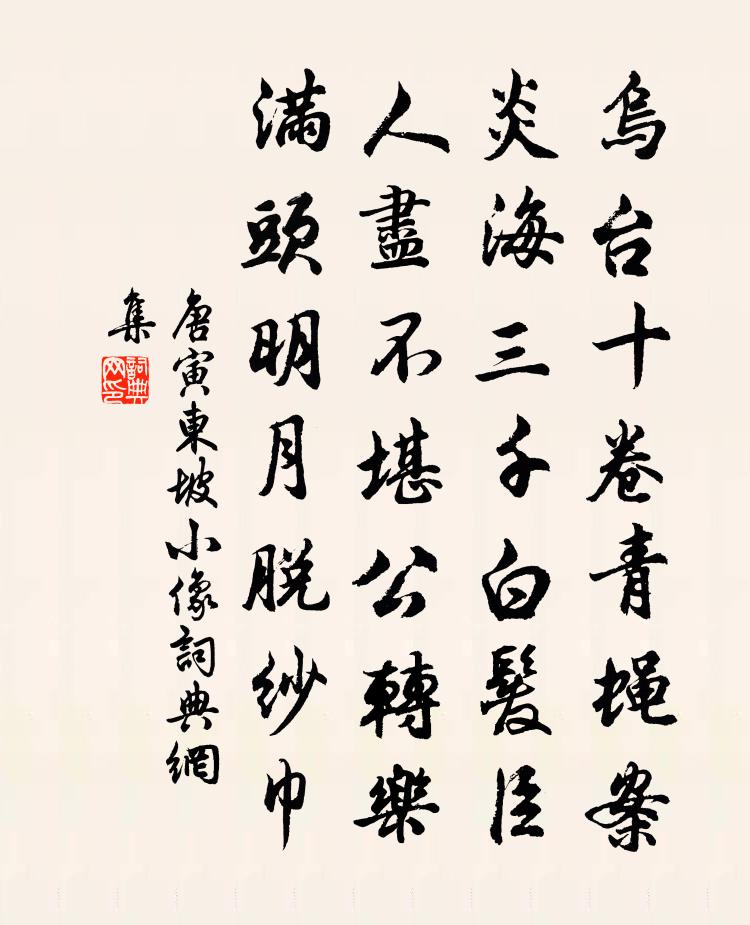 烏台十卷青蠅案
炎海三千白髮臣
人盡不堪公轉樂
滿頭明月脫紗巾
唐寅東坡小像詞典網
集
詞典
网印